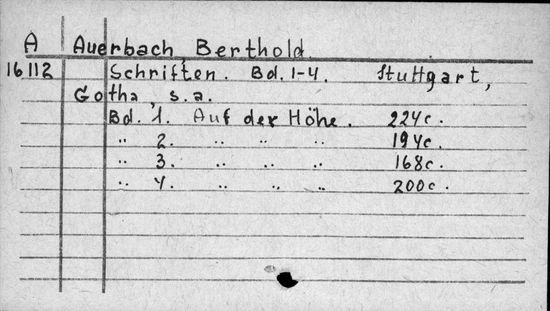 A Auerbach Berthold.
16112 Schriften. Bd. 1-4. Stuttgart,
Gotha, s.a.
Bd. 1. Auf der Höhe. 224c.
" 2. " " " 194c.
" 3. " " " 168c.
" 4. " " " 200c.